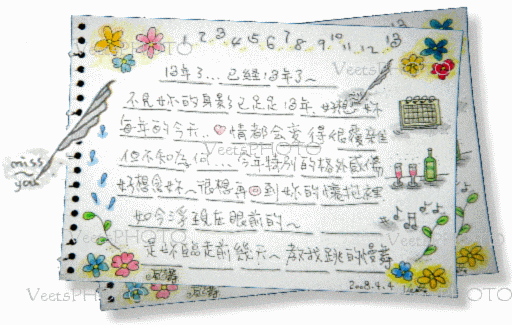 VeetsPHOTO
1 2 3 4 5 6 7 8 9 10 11 12 13
13年了...已經13年了~
VeetsPHOTO
不見妳的身影已足足13年 好想妳
每年的今天..情都會變得很複雜
VeetsPHOTO
miss you
但不知為何...今年特別的格外感傷
好想念妳~很想再回到妳的懷抱裡
如今浮現在眼前的~
是妳臨走前幾天~教我跳的慢舞
2008.4.4
VeetsPHOTO